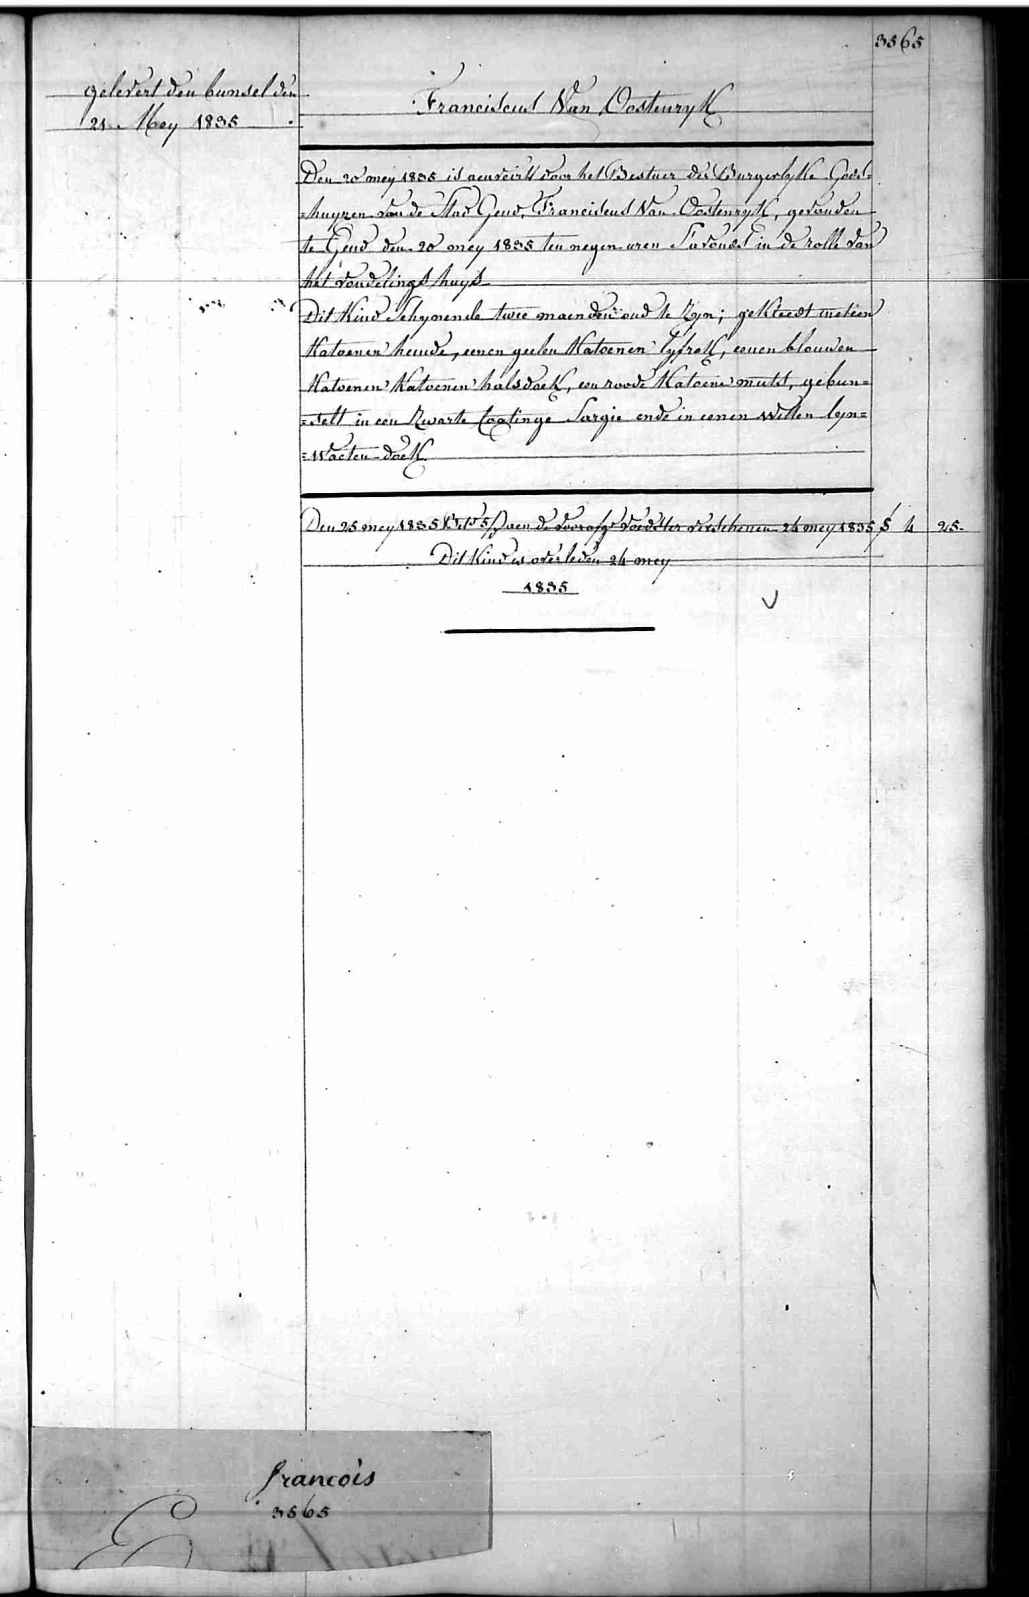 3565
gelevert den bunsel den
21 Mey 1835
Franciscus Van Oostenryk
Den 20 mey 1835 is aenveirt door het Bestuer der Burgerlyke Gods=
=huyzen van de Stad Gend, Franciscus Van Oostenryk, gevonden
te Gend den 20 mey 1835 ten negen uren S'avonds in de rolle van
het vondelings huys
Dit Kind schynende twee maenden oud te Zyn; gekleedt met een
Katoenen hemde, eenen geelen Katoenen lyfrok, eenen blouwen
Katoenen Katoenen halsdoek, een roode Katoene muts, gebun=
=selt in een Zwarte Sargie ende in eenen Witten lyn=
=waeten doek
Den 25 mey 1835 aen de voedster verschenen 24 mey 1835 4 25
Dit Kind is overleden 24 mey
1835
francois
3565